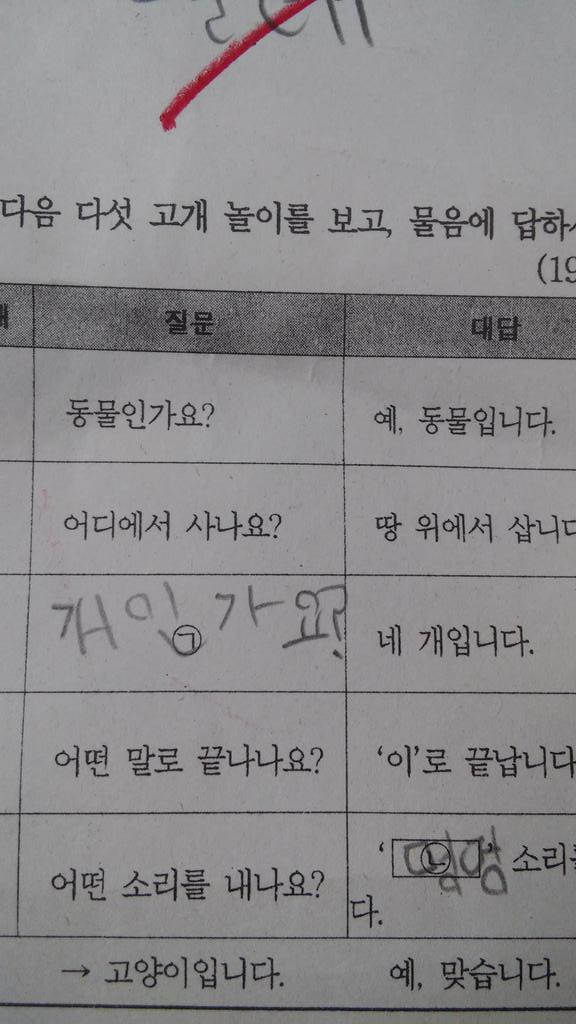 다음 다섯 고개 놀이를 보고, 물음에 답하
(19
질문 대답
동물인가요? 예, 동물입니다.
어디에서 사나요? 땅 위에서 삽니
㉠ 가요? 네 개입니다.
어떤 말로 끝나나요? ‘이’로 끝납니다
어떤 소리를 내나요? ‘ ㉡ ’ 소리를
다.
→ 고양이입니다. 예, 맞습니다.